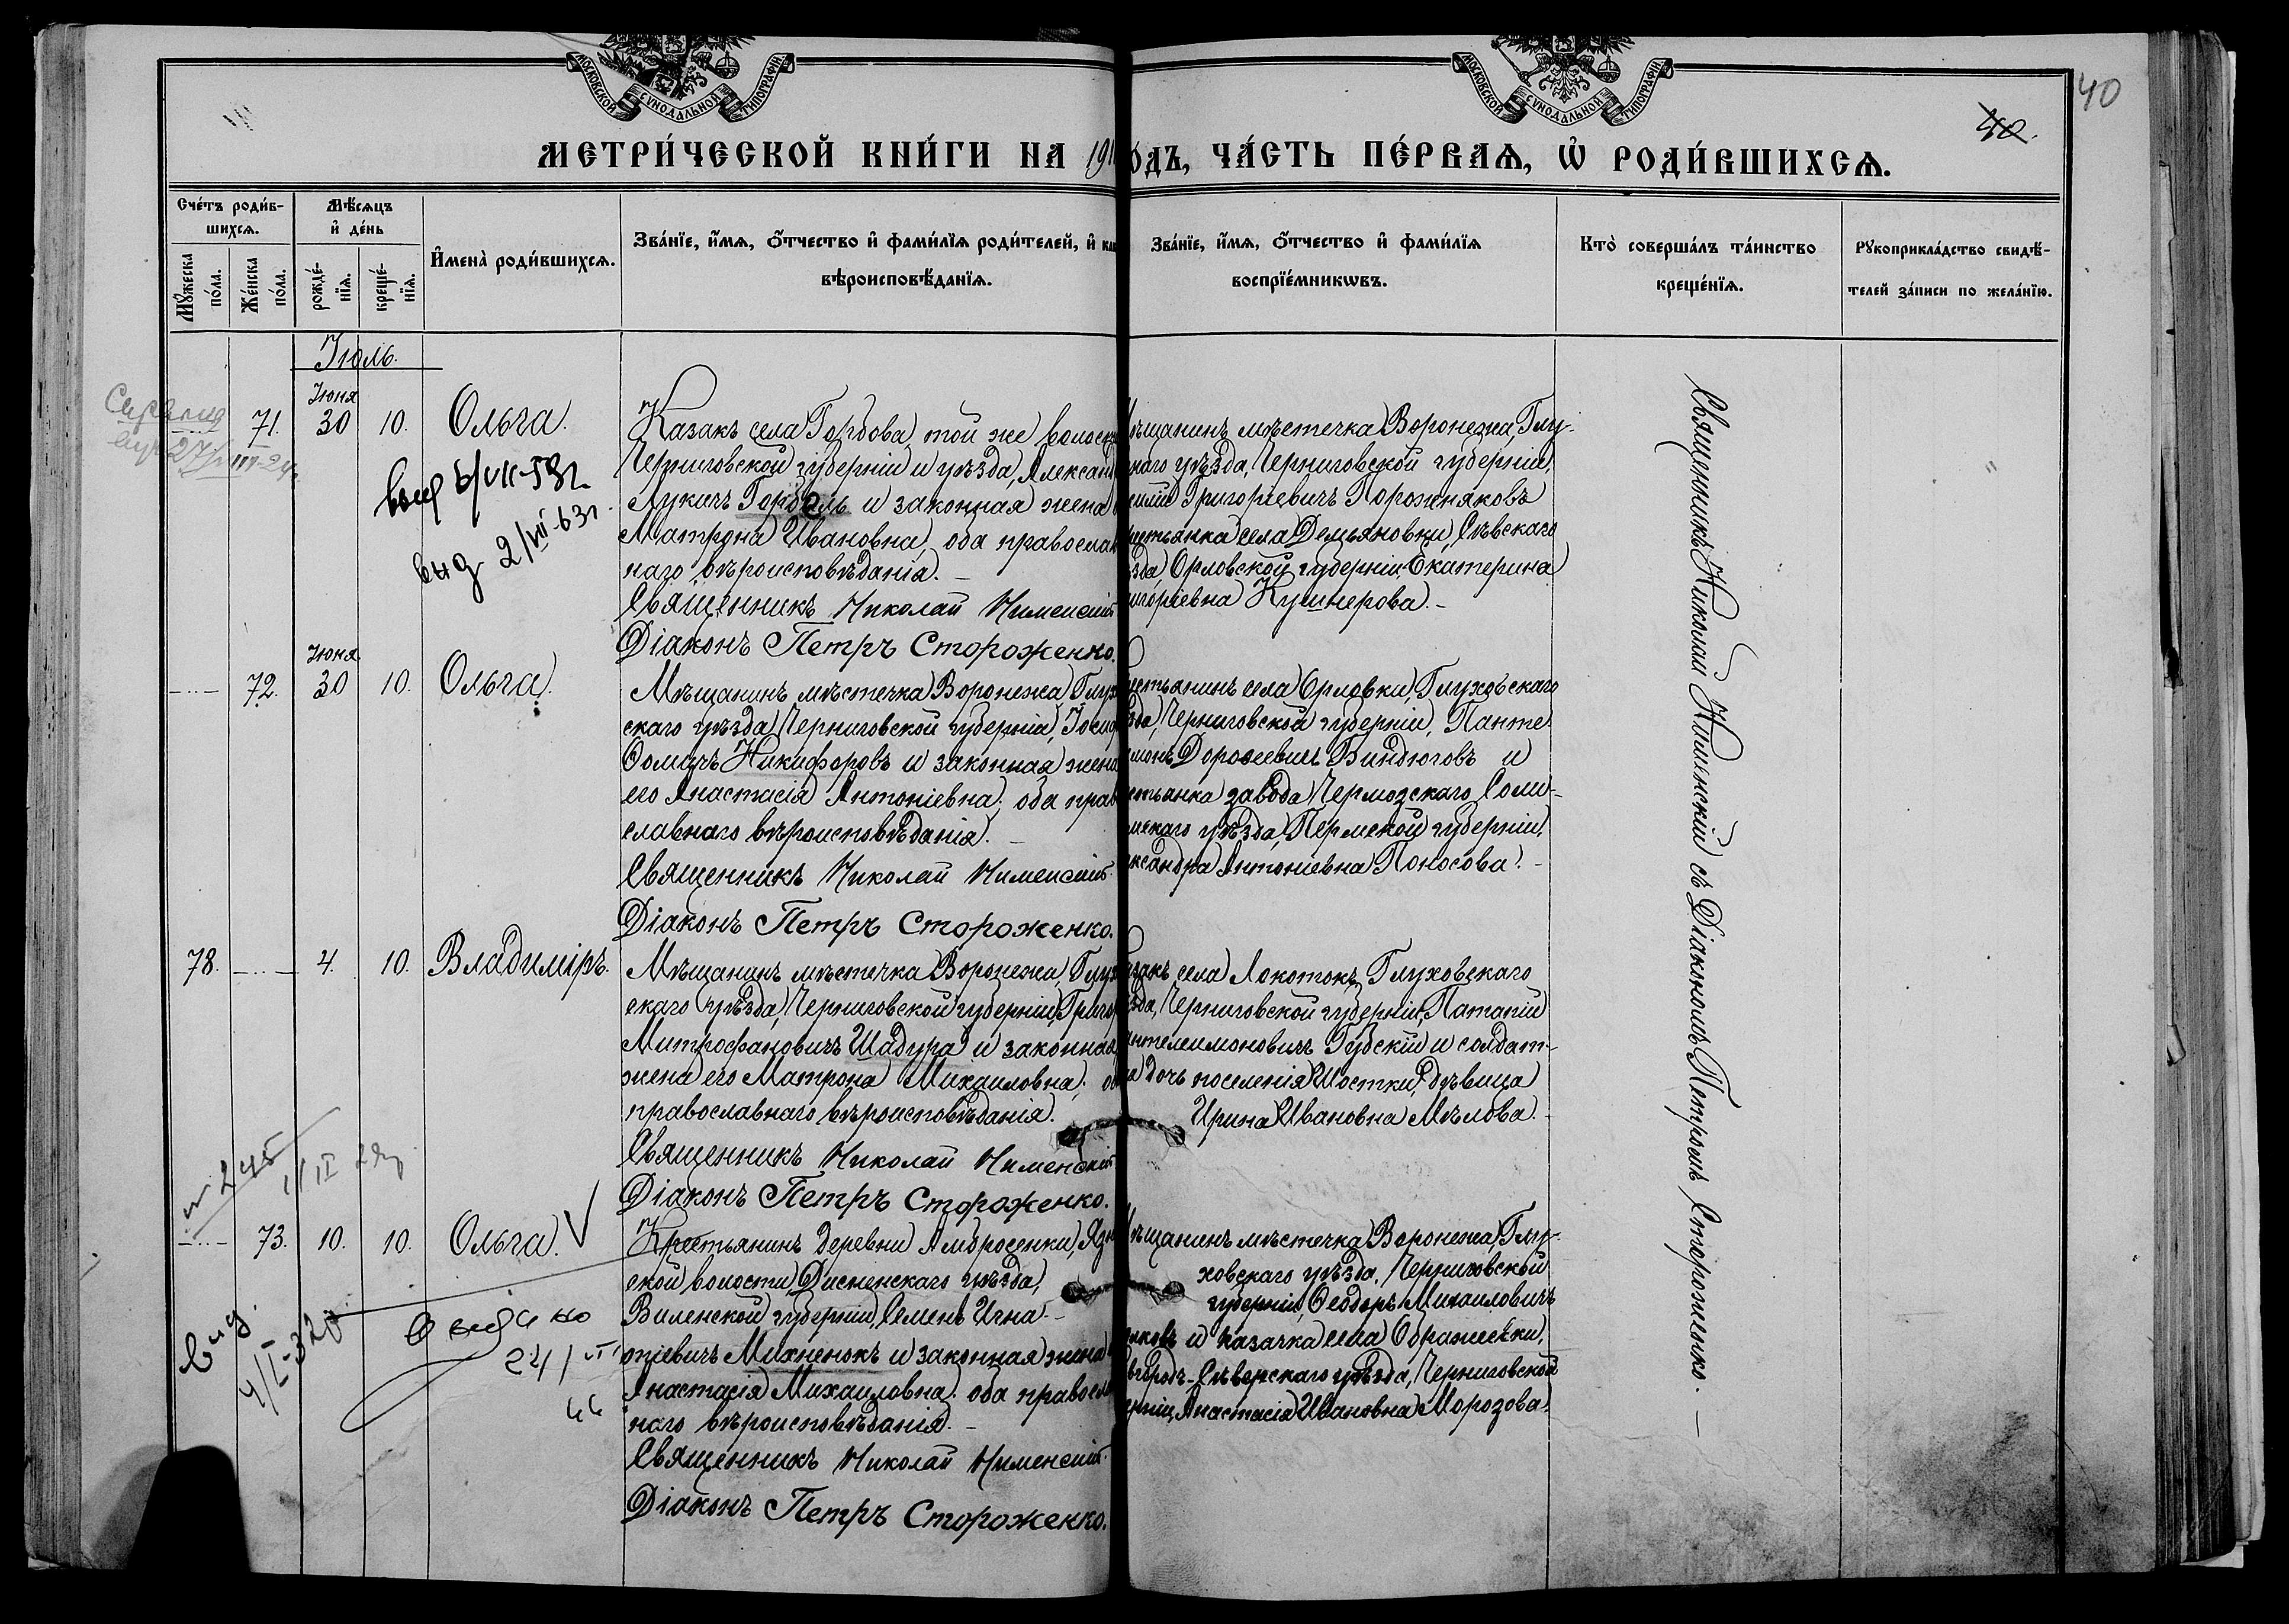 МОСКОВСКОЙ СУНОДАЛЬНОЙ ТИПОГРАФІИ
МОСКОВСКОЙ СУНОДАЛЬНОЙ ТИПОГРАФІИ
40
40.
МЕТРИ́ЧЕСКОЙ КНИ́ГИ НА 191
ОДЪ, ЧА́СТЬ ПЕ́РВАѦ, Ѡ҆ РОДИ́ВШИХСѦ.
Сче́тъ роди́в-
шихсѧ.
Мѣ́сѧцъ
и҆ де́нь
Мꙋ́жеска
по́ла.
Же́нска
по́ла.
рожде́-
нїѧ.
креще́-
нїѧ.
И҆мена̀ роди́вшихсѧ.
Зва́нїе, и҆́мѧ, ѻ҆́тчество и҆ фами́лїѧ роди́телей, и҆ как
вѣроисповѣ́данїѧ.
Зва́нїе, и҆́мѧ, ѻ҆́тчество и҆ фами́лїѧ
воспрїе́мникѡвъ.
Кто̀ соверша́лъ та́инство
креще́нїѧ.
Рꙋкоприкла́дство свидѣ́-
телей за́писи по жела́нїю.
Іюль.
Іюня
71. 30 10. Ольга.
Казакъ села Горбова, той же волост
Черниговской губерніи и уѣзда, Александ
Лукичъ Горбаль и законная жена
Матрона Ивановна, оба православ
наго вѣроисповѣданія. –
Священникъ Николай Нименскій
Діаконъ Петръ Стороженко.
ѣщанинъ мѣстечка Воронежа, Глу-
наго уѣзда, Черниговской губерніи,
Григоріевичъ Порожняковъ
стьянка села Демьяновки, Сѣвскаго
зда, Орловской губерніи, Екатерина
игоріевна Кушнерова. –
выд 6/VII-58г
выд 2/VII-63г.
Іюня
72. 30 10. Ольга.
Мѣщанинъ мѣстечка Воронежа, Глух
скаго уѣзда, Черниговской губерніи, Іосиф
Ѳомичъ Никифоровъ и законная жена
его Анастасія Антоніевна, оба прав
славнаго вѣроисповѣданія. –
Священникъ Николай Нименскій
Діаконъ Петръ Стороженко.
естьянинъ села Орловки, Глуховскаго
зда, Черниговской губерніи, Панте-
монъ Дороѳеевичъ Биндюговъ и
стьянка завода Чермозскаго, Соли-
мскаго уѣзда, Пермской губерніи,
ександра Антоніевна Поносова. –
78. 4. 10. Владиміръ.
Мѣщанинъ мѣстечка Воронежа, Глух
скаго уѣзда, Черниговской губерніи, Григо
Митрофановичъ Шадура и законная
жена его Матрона Михаиловна, об
православнаго вѣроисповѣданія.
Священникъ Николай Нименскій
Діаконъ Петръ Стороженко.
азакъ села Локотокъ, Глуховскаго
зда, Черниговской губерніи, Патапій
антелеимоновичъ Губскій и солдат-
а дочь поселенія Шостки, дѣвица
Ирина Ивановна Мѣлова. –
73. 10. 10. Ольга.
Крестьянинъ деревни Амбросенки, Язн
ской волости, Дисненскаго уѣзда,
Виленской губерніи, Семенъ Игна-
тіевичъ Михненокъ и законная жена
Анастасія Михаиловна, оба правосла
наго вѣроисповѣданія. –
Священникъ Николай Нименскій
Діаконъ Петръ Стороженко.
ѣщанинъ мѣстечка Воронежа, Глу-
ховскаго уѣзда, Черниговской
губерніи, Ѳеодоръ Михаиловичъ
ковъ и казачка села Ображеевки,
вгородъ-Сѣверскаго уѣзда, Черниговской
ерніи, Анастасія Ивановна Морозова.
Выд.
4/I-32г
Выдано
24/VII
44
Священникъ Николай Нименскій съ Діакономъ Петромъ Стороженко. –